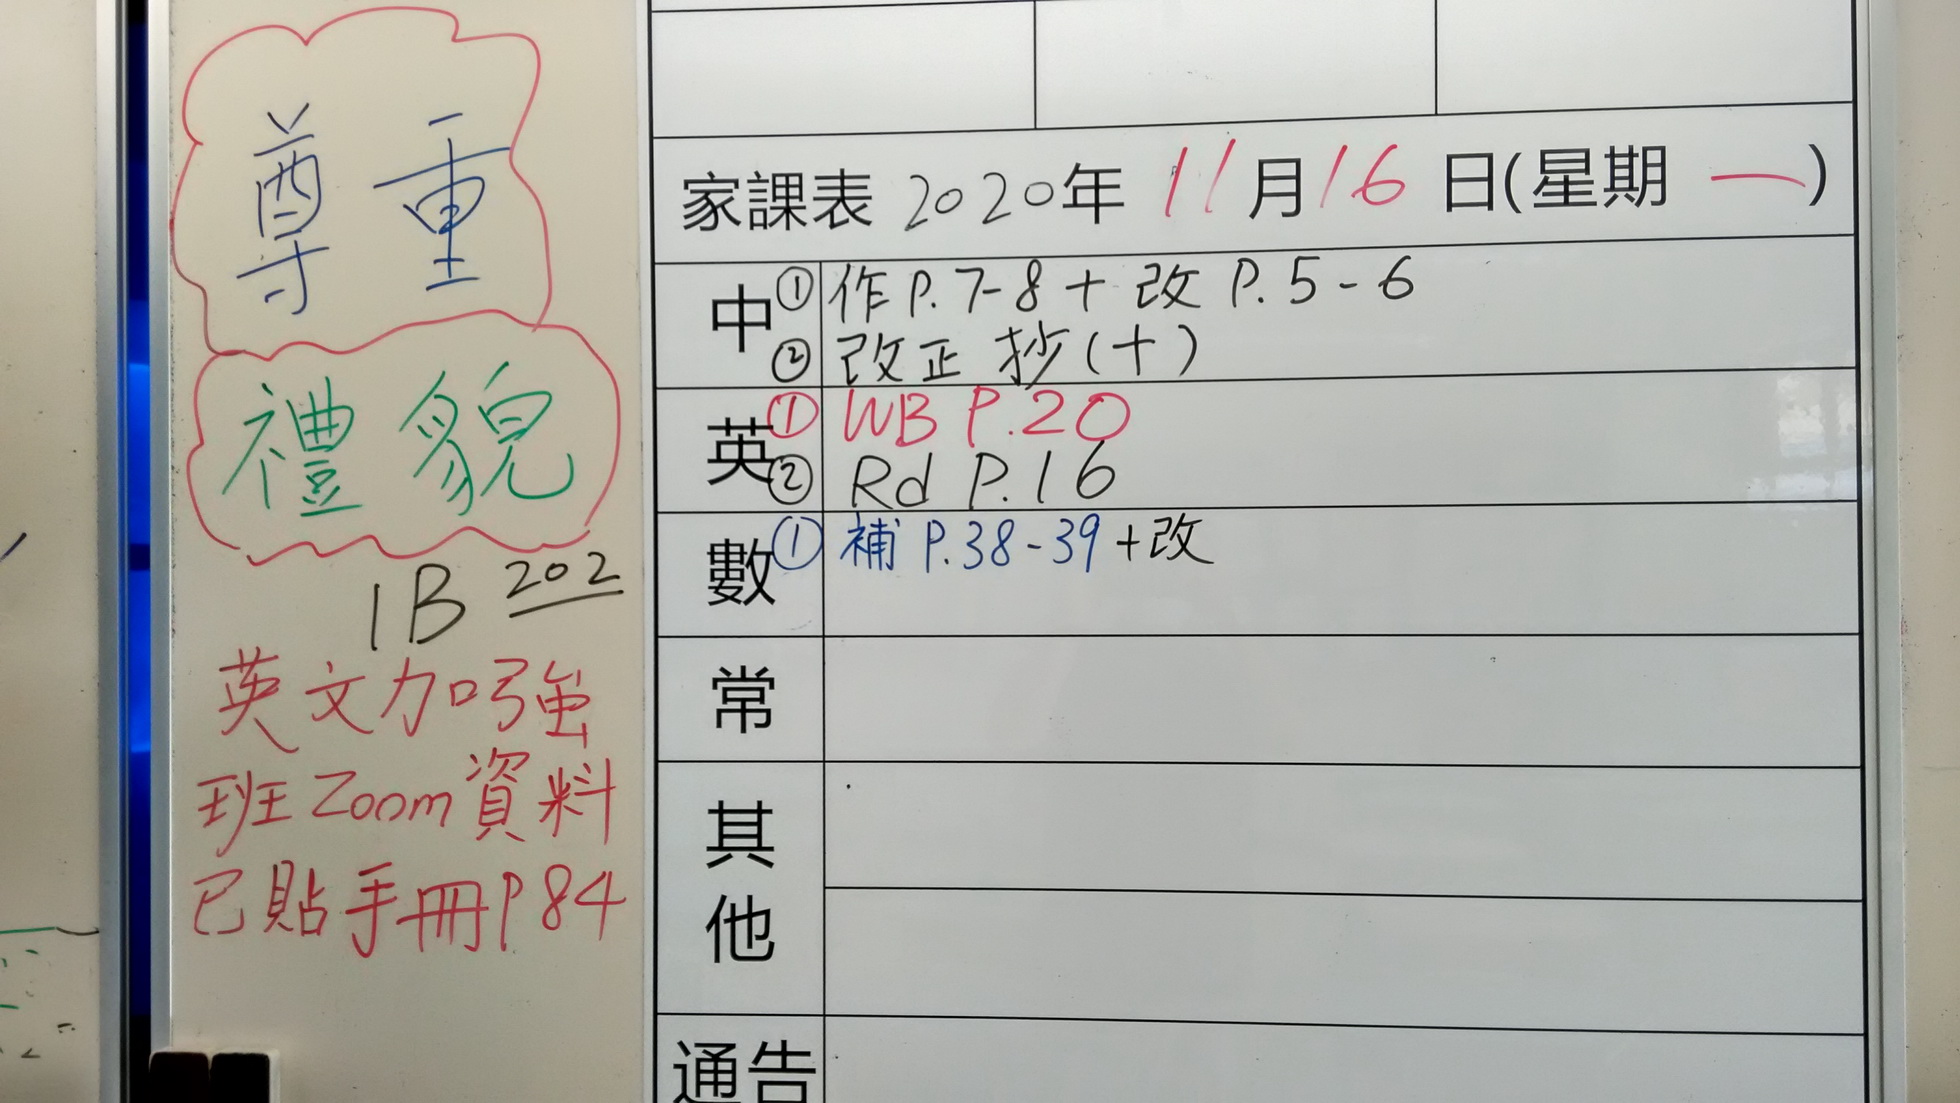 尊重
禮貌
1B 202
英文加強
班Zoom資料
已貼手冊P84
家課表 2020年 11月16日(星期 一)
中 ① 作 P.7-8 + 改 P.5-6
② 改正 抄(十)
英 ① WB P.20
② Rd P.16
數 ① 補 P.38-39+改
常
其
他
通告